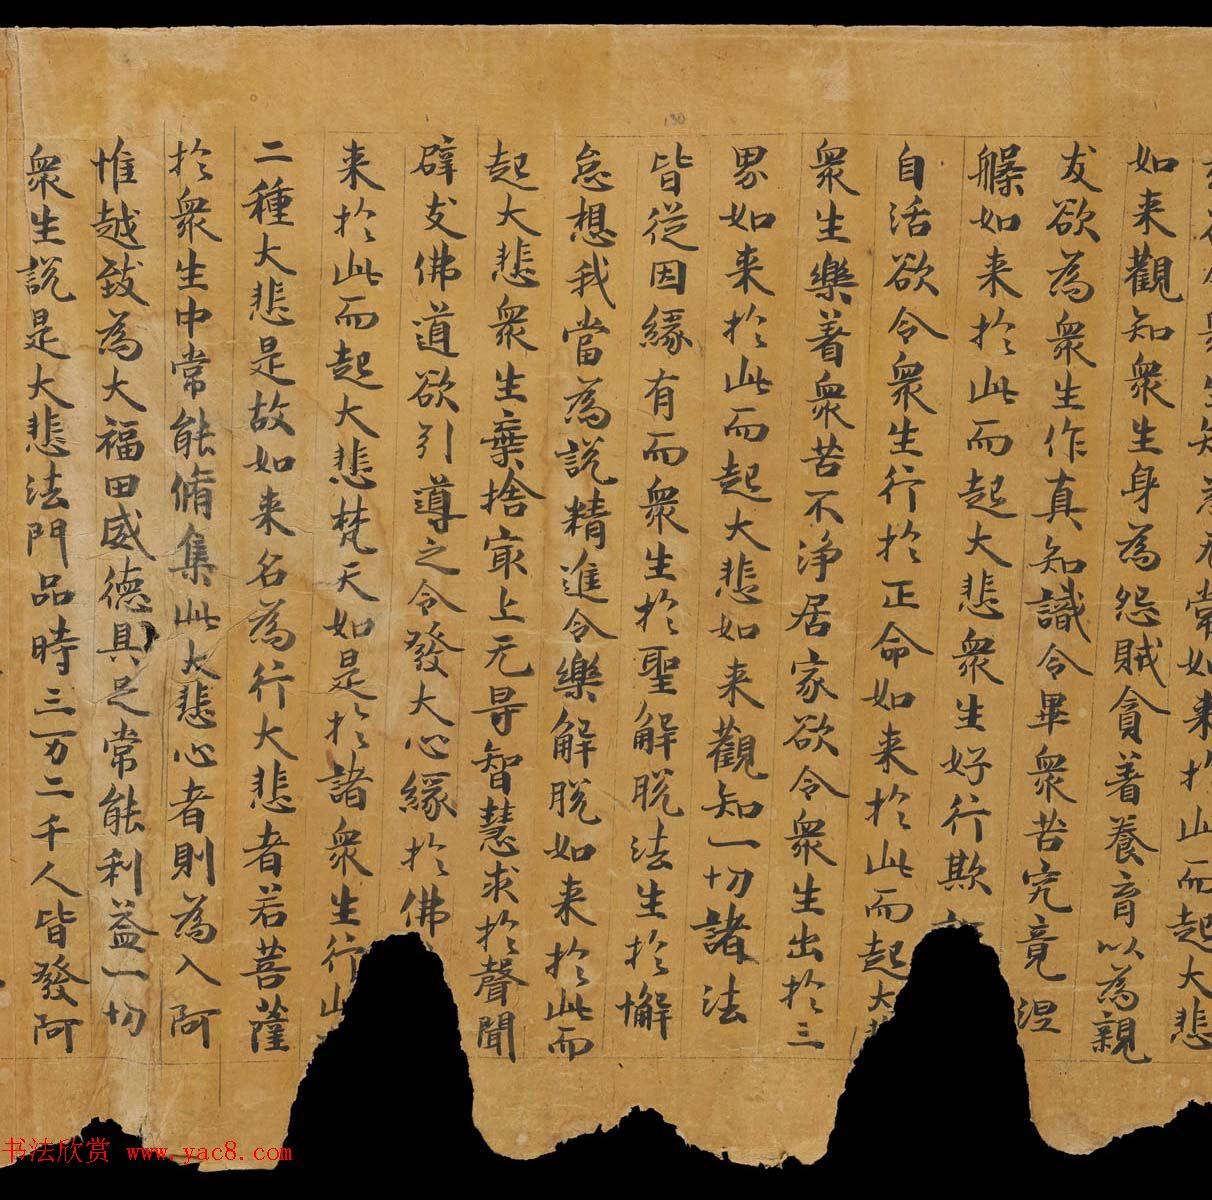 生知無常如来於此而起大悲
如来觀知衆生身為怨賊貪著養育以為親
友欲為衆生作真知識令畢衆苦究竟涅
如来於此而起大悲衆生好行欺
自活欲令衆生行於正命如来於此而起大
衆生樂著衆苦不浄居家欲令衆生出於三
界如来於此而起大悲如来觀知一切諸法
皆從因緣有而衆生於聖解脱法生於懈
怠想我當為説精進令樂解脱如来於此而
起大悲衆生棄捨冣上无㝵智慧求於聲聞
辟支佛道欲引導之令發大心緣於佛
来於此而起大悲梵天如是於諸衆生行此
二種大悲是故如来名為行大悲者若菩薩
於衆生中常能脩集此大悲心者則為入阿
惟越致為大福田威德具足常能利益一切
衆生説是大悲法門品時三万二千人皆發阿
130
书法欣赏 www.yac8.com